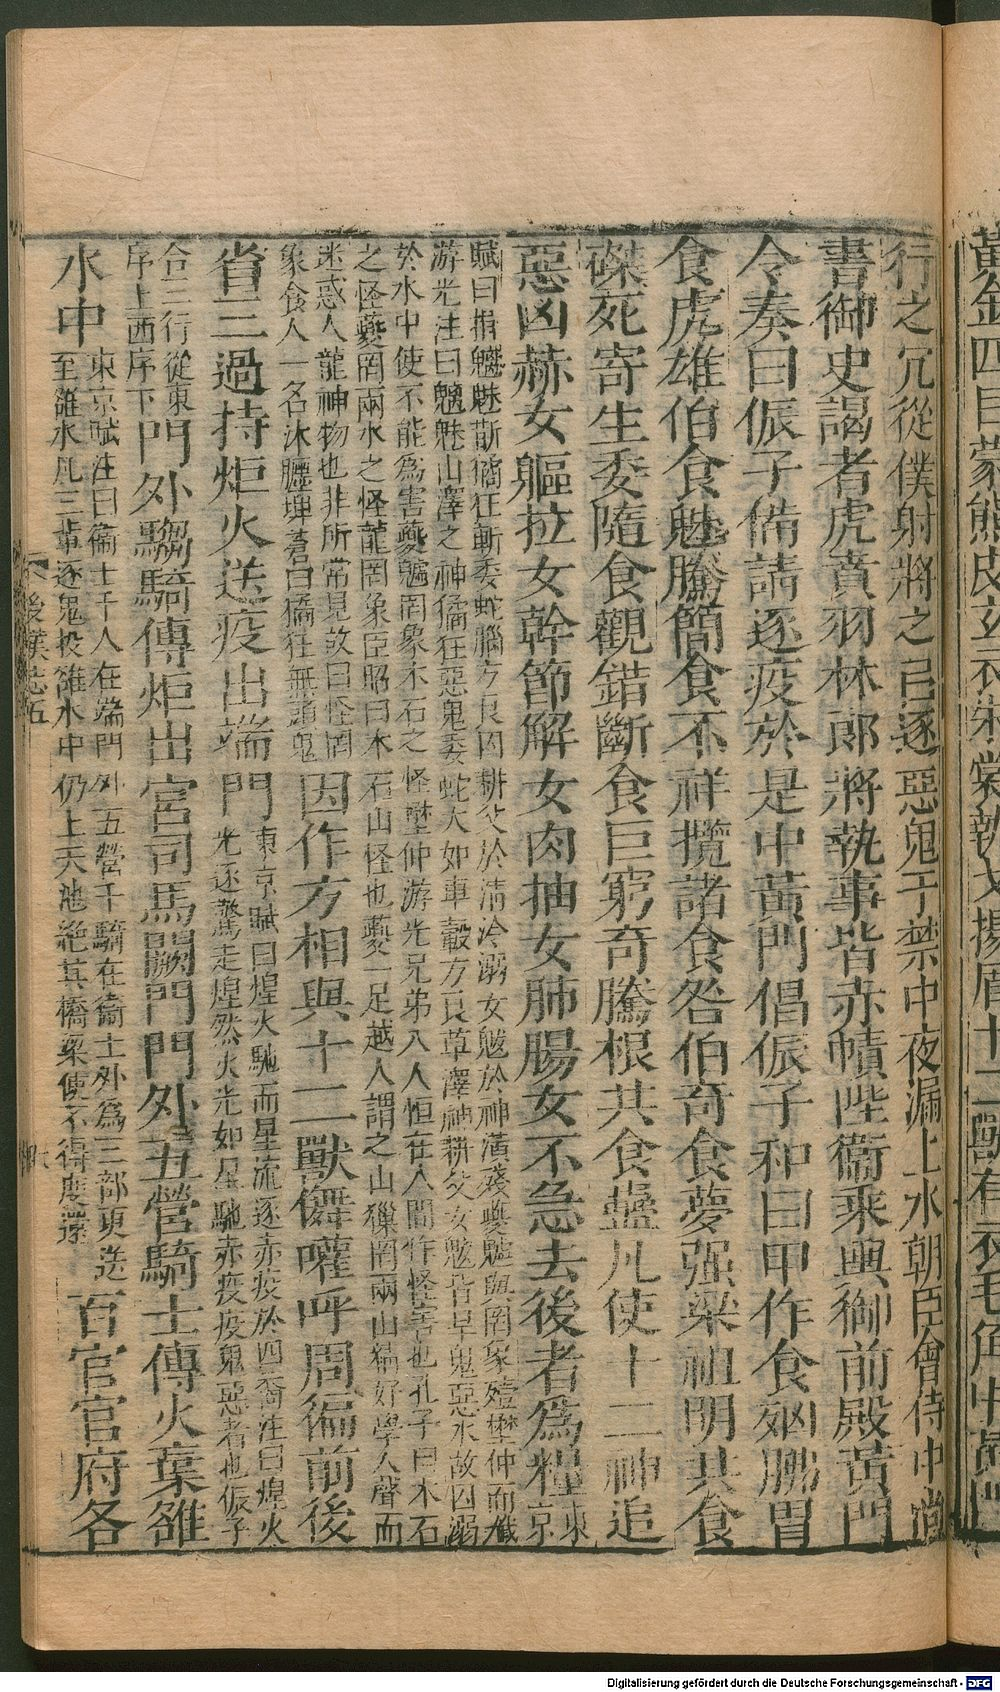 黃金四目蒙熊皮玄衣朱裳執戈揚盾十二獸有衣毛角中黃門
行之冗從僕射將之㠯逐惡鬼于禁中夜漏上水朝臣會侍中尚
書御史謁者虎賁羽林郎將執事皆赤幘陛衞乘輿御前殿黃門
令奏曰侲子備請逐疫於是中黃門倡侲子和曰甲作食𣧑胇胃
食虎雄伯食魅騰簡食不祥攬諸食咎伯奇食夢强梁祖明共食
磔死寄生委隨食觀錯斷食巨窮奇騰根共食蠱凡使十二神追
惡凶赫女軀拉女幹節解女肉抽女肺腸女不急去後者為糧東京
賦曰捎魑魅斮獝狂斬委蛇腦方良囚耕父於清泠溺女魃於神潢殘夔魖與罔象殪壄仲而殲
游光注曰魑魅山澤之神獝狂惡鬼委蛇大如車轂方良草澤神耕父女魃皆旱鬼惡水故囚溺
於水中使不能為害夔魖罔象木石之怪壄仲游光兄弟八人恒在人間作怪害也孔子曰木石
之怪夔罔兩水之怪龍罔象臣昭曰木石山怪也夔一足越人謂之山獵罔兩山精好學人聲而
迷惑人龍神物也非所常見故曰怪罔
象食人一名沐腫埤蒼曰獝狂無頭鬼
因作方相與十二獸儛嚾呼周徧前後
省三過持炬火送疫出端門
東京賦曰煌火馳而星流逐赤疫於四裔注曰煌火
光逐驚走煌然火光如星馳赤疫疫鬼惡者也侲子
合三行從東
序上西序下
門外騶騎傳炬出宮司馬闕門門外五營騎士傳火棄雒
水中
東京賦注曰衞士千人在端門外五營千騎在衞士外為三部更送
至雒水凡三輩逐鬼投雒水中仍上天池絕其橋梁使不得度還
百官官府各
後漢志五
Digitalisierung gefördert durch die Deutsche Forschungsgemeinschaft - DFG